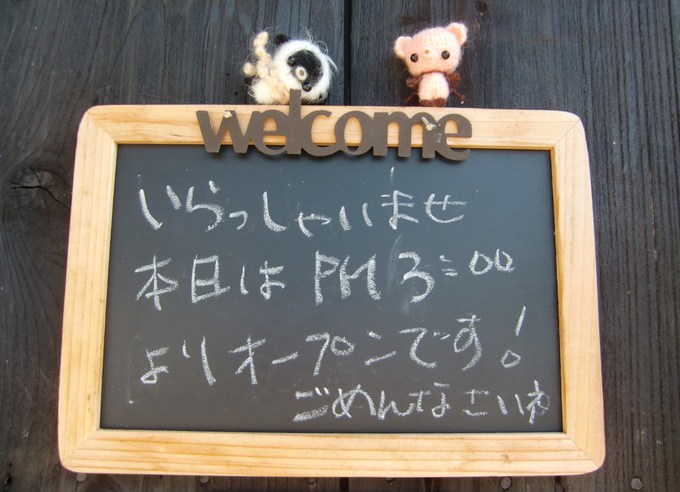 welcome
いらっしゃいませ
本日は PM 3:00
よりオープンです!
ごめんなさいネ